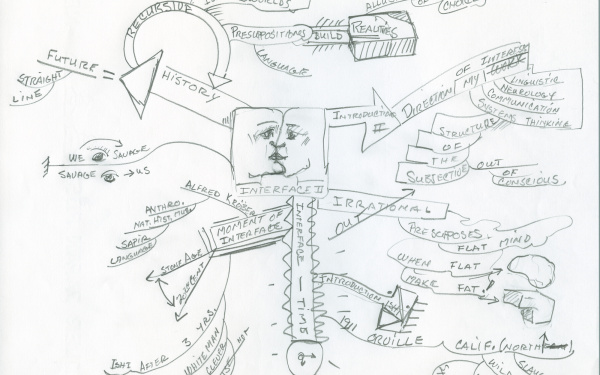 WORLDS
ALLUS
OF
CHORUS
RECURSIVE
PRESUPPOSITIONS BUILD REALITIES
LANGUAGE
FUTURE =
STRAIGHT
LINE
HISTORY
INTRODUCTION
II
DIRECTION
OF INTEREST
MY
LINGUISTIC
NEUROLOGY
COMMUNICATION
SYSTEMS THINKING
STRUCTURE
OF
THE
SUBJECTIVE
OUT
OF
CONSCIOUS
WE SAVAGE
SAVAGE → US
INTERFACE II
ALFRED
ANTHRO.
NAT. HIST. MUS.
SAPIR
LANGUAGE
MOMENT OF
INTERFACE
STONE AGE
20TH CENT
INTERFACE - TIME
IRRATIONAL
PRESUPPOSES.
FLAT MIND
WHEN FLAT
MAKE FAT.
INTRODUCTION
ISHI
1911
OROVILLE
CALIF. (NORTH
ISHI AFTER 3 YRS.
WHITE MAN
CLEVER
NOT
WILD